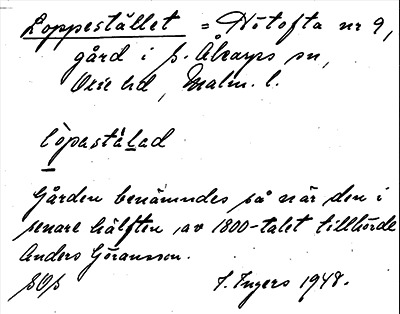 Loppestället = Hötofta nr 9,
gård i s. Åkarps sn,
Oxie hd, Malm. l.
lòpastälad
Gården benämndes så när den i
senare hälften av 1800-talet tillhörde
Anders Göransson.
SOs I. Ingers 1948.